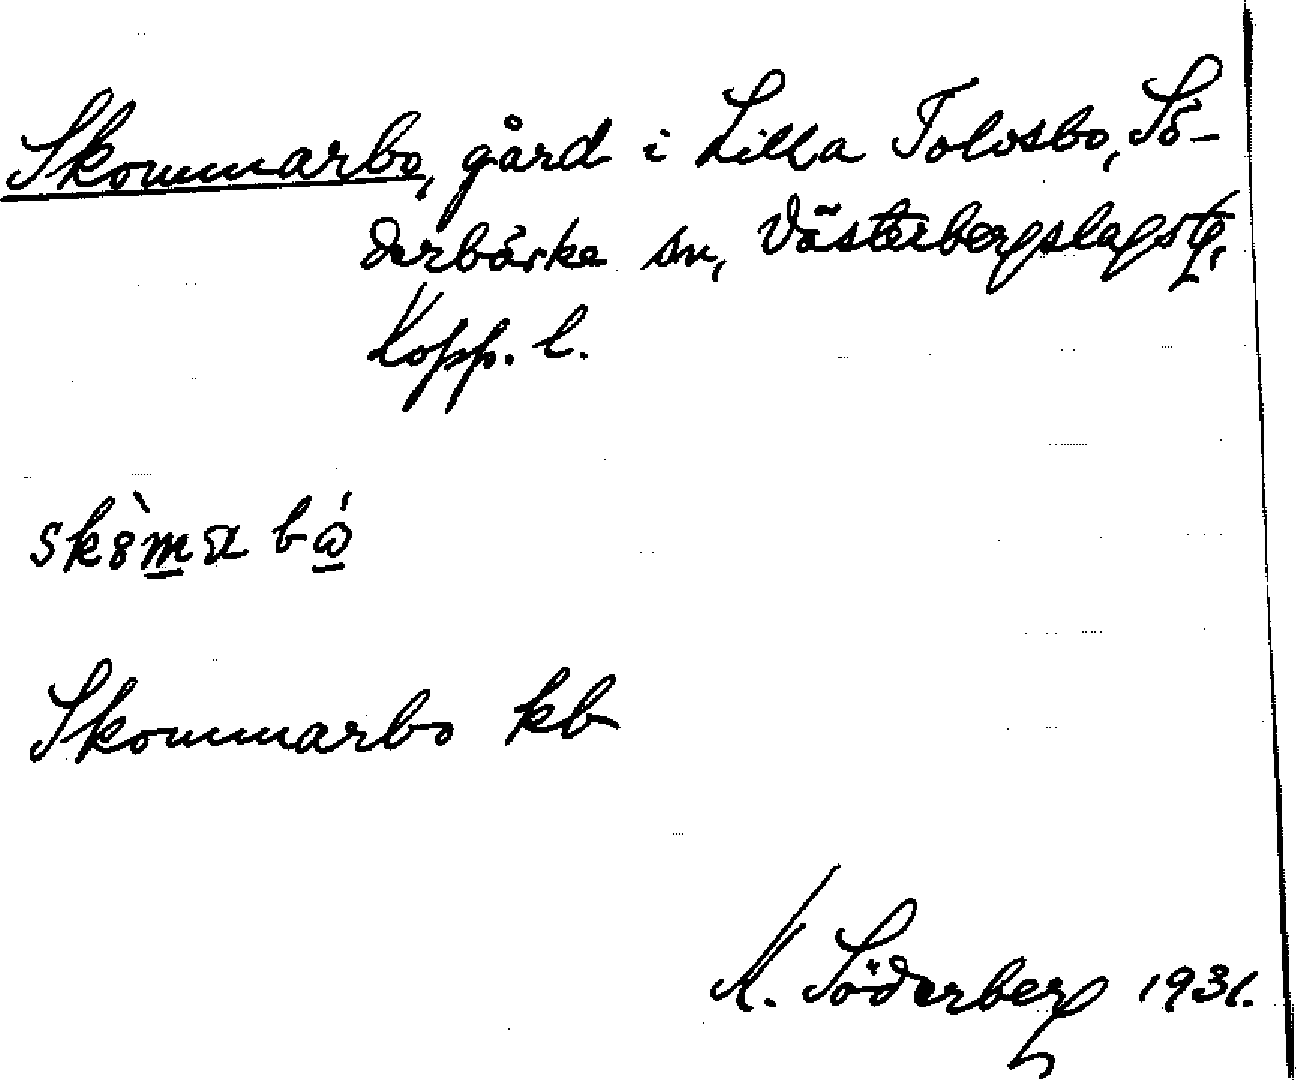 Skommarbo, gård i Lilla Tolvsbo, Sö-
derbärke sn, Västerbergslags
Kopp. l.
Skommarbo kb
K. Söderberg 1931.